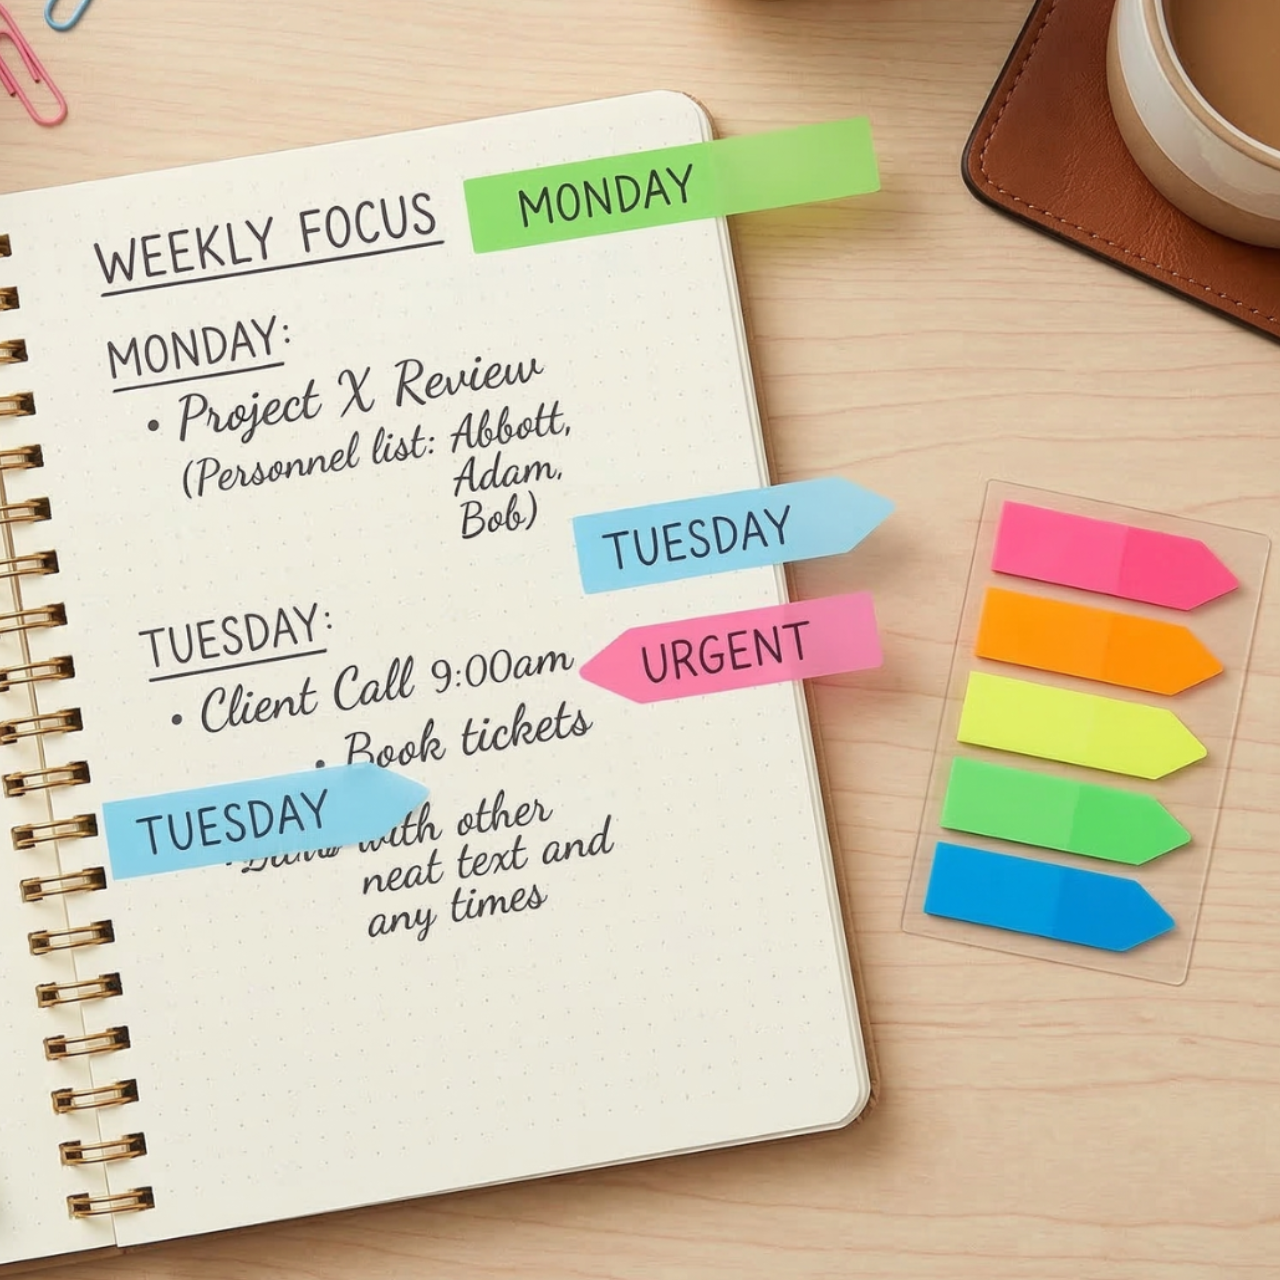 WEEKLY FOCUS
MONDAY
MONDAY:
• Project X Review
(Personnel list: Abbott,
Adam.
Bob)
TUESDAY
TUESDAY:
• Client Call 9:00am
URGENT
• Book tickets
TUESDAY
with other
neat text and
any times